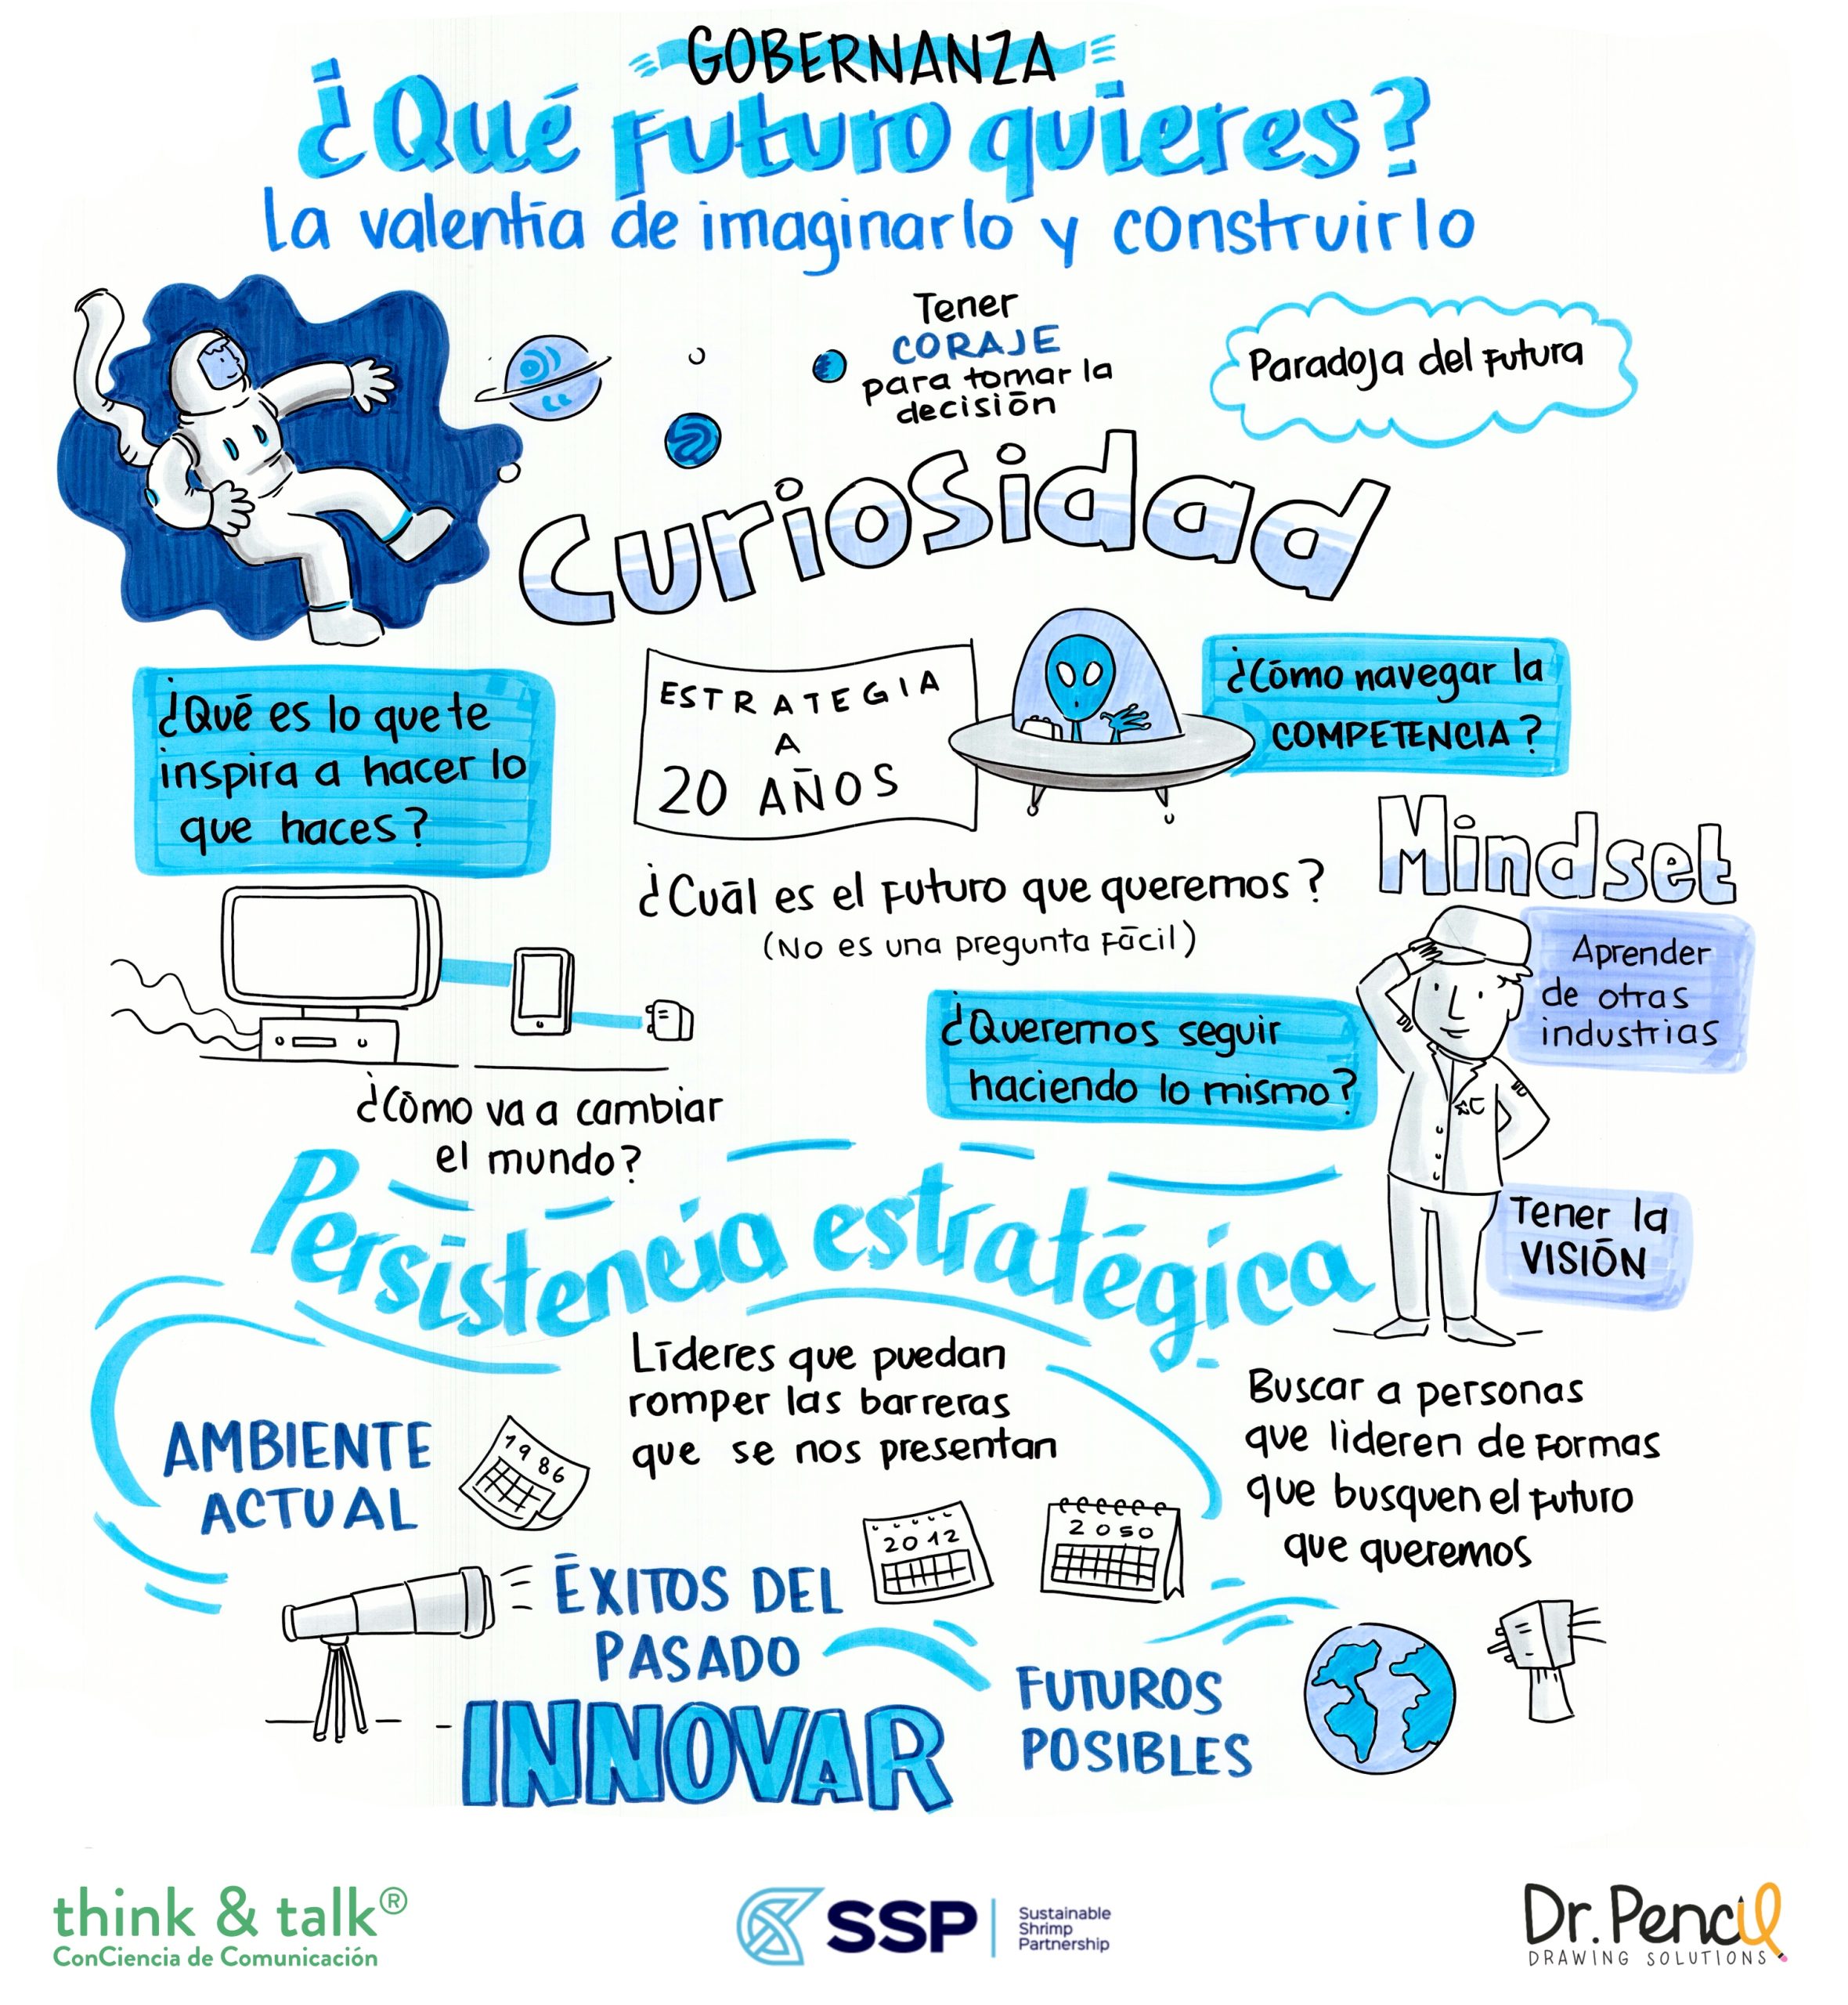 GOBERNANZA
¿Qué Futuro quieres?
La valentía de imaginarlo y construirlo
Tener
CORAJE
para tomar la
decisión
Paradoja del Futura
Curiosidad
¿Qué es lo que te
inspira a hacer lo
que haces?
ESTRATEGIA
A
20 AÑOS
¿Cómo navegar la
COMPETENCIA?
Mindset
¿Cuál es el Futuro que queremos?
(No es una pregunta Fácil)
Aprender
de otras
industrias
¿Queremos seguir
haciendo lo mismo?
¿Cómo va a cambiar
el mundo?
Tener la
VISIÓN
Persistencia estratégica
Líderes que puedan
romper las barreras
que se nos presentan
Buscar a personas
que lideren de Formas
que busquen el Futuro
que queremos
AMBIENTE
ACTUAL
1986
2012
2050
ÉXITOS DEL
PASADO
INNOVAR
FUTUROS
POSIBLES
think & talk®
ConCiencia de Comunicación
SSP
Sustainable
Shrimp
Partnership
Dr. Pencil
DRAWING SOLUTIONS